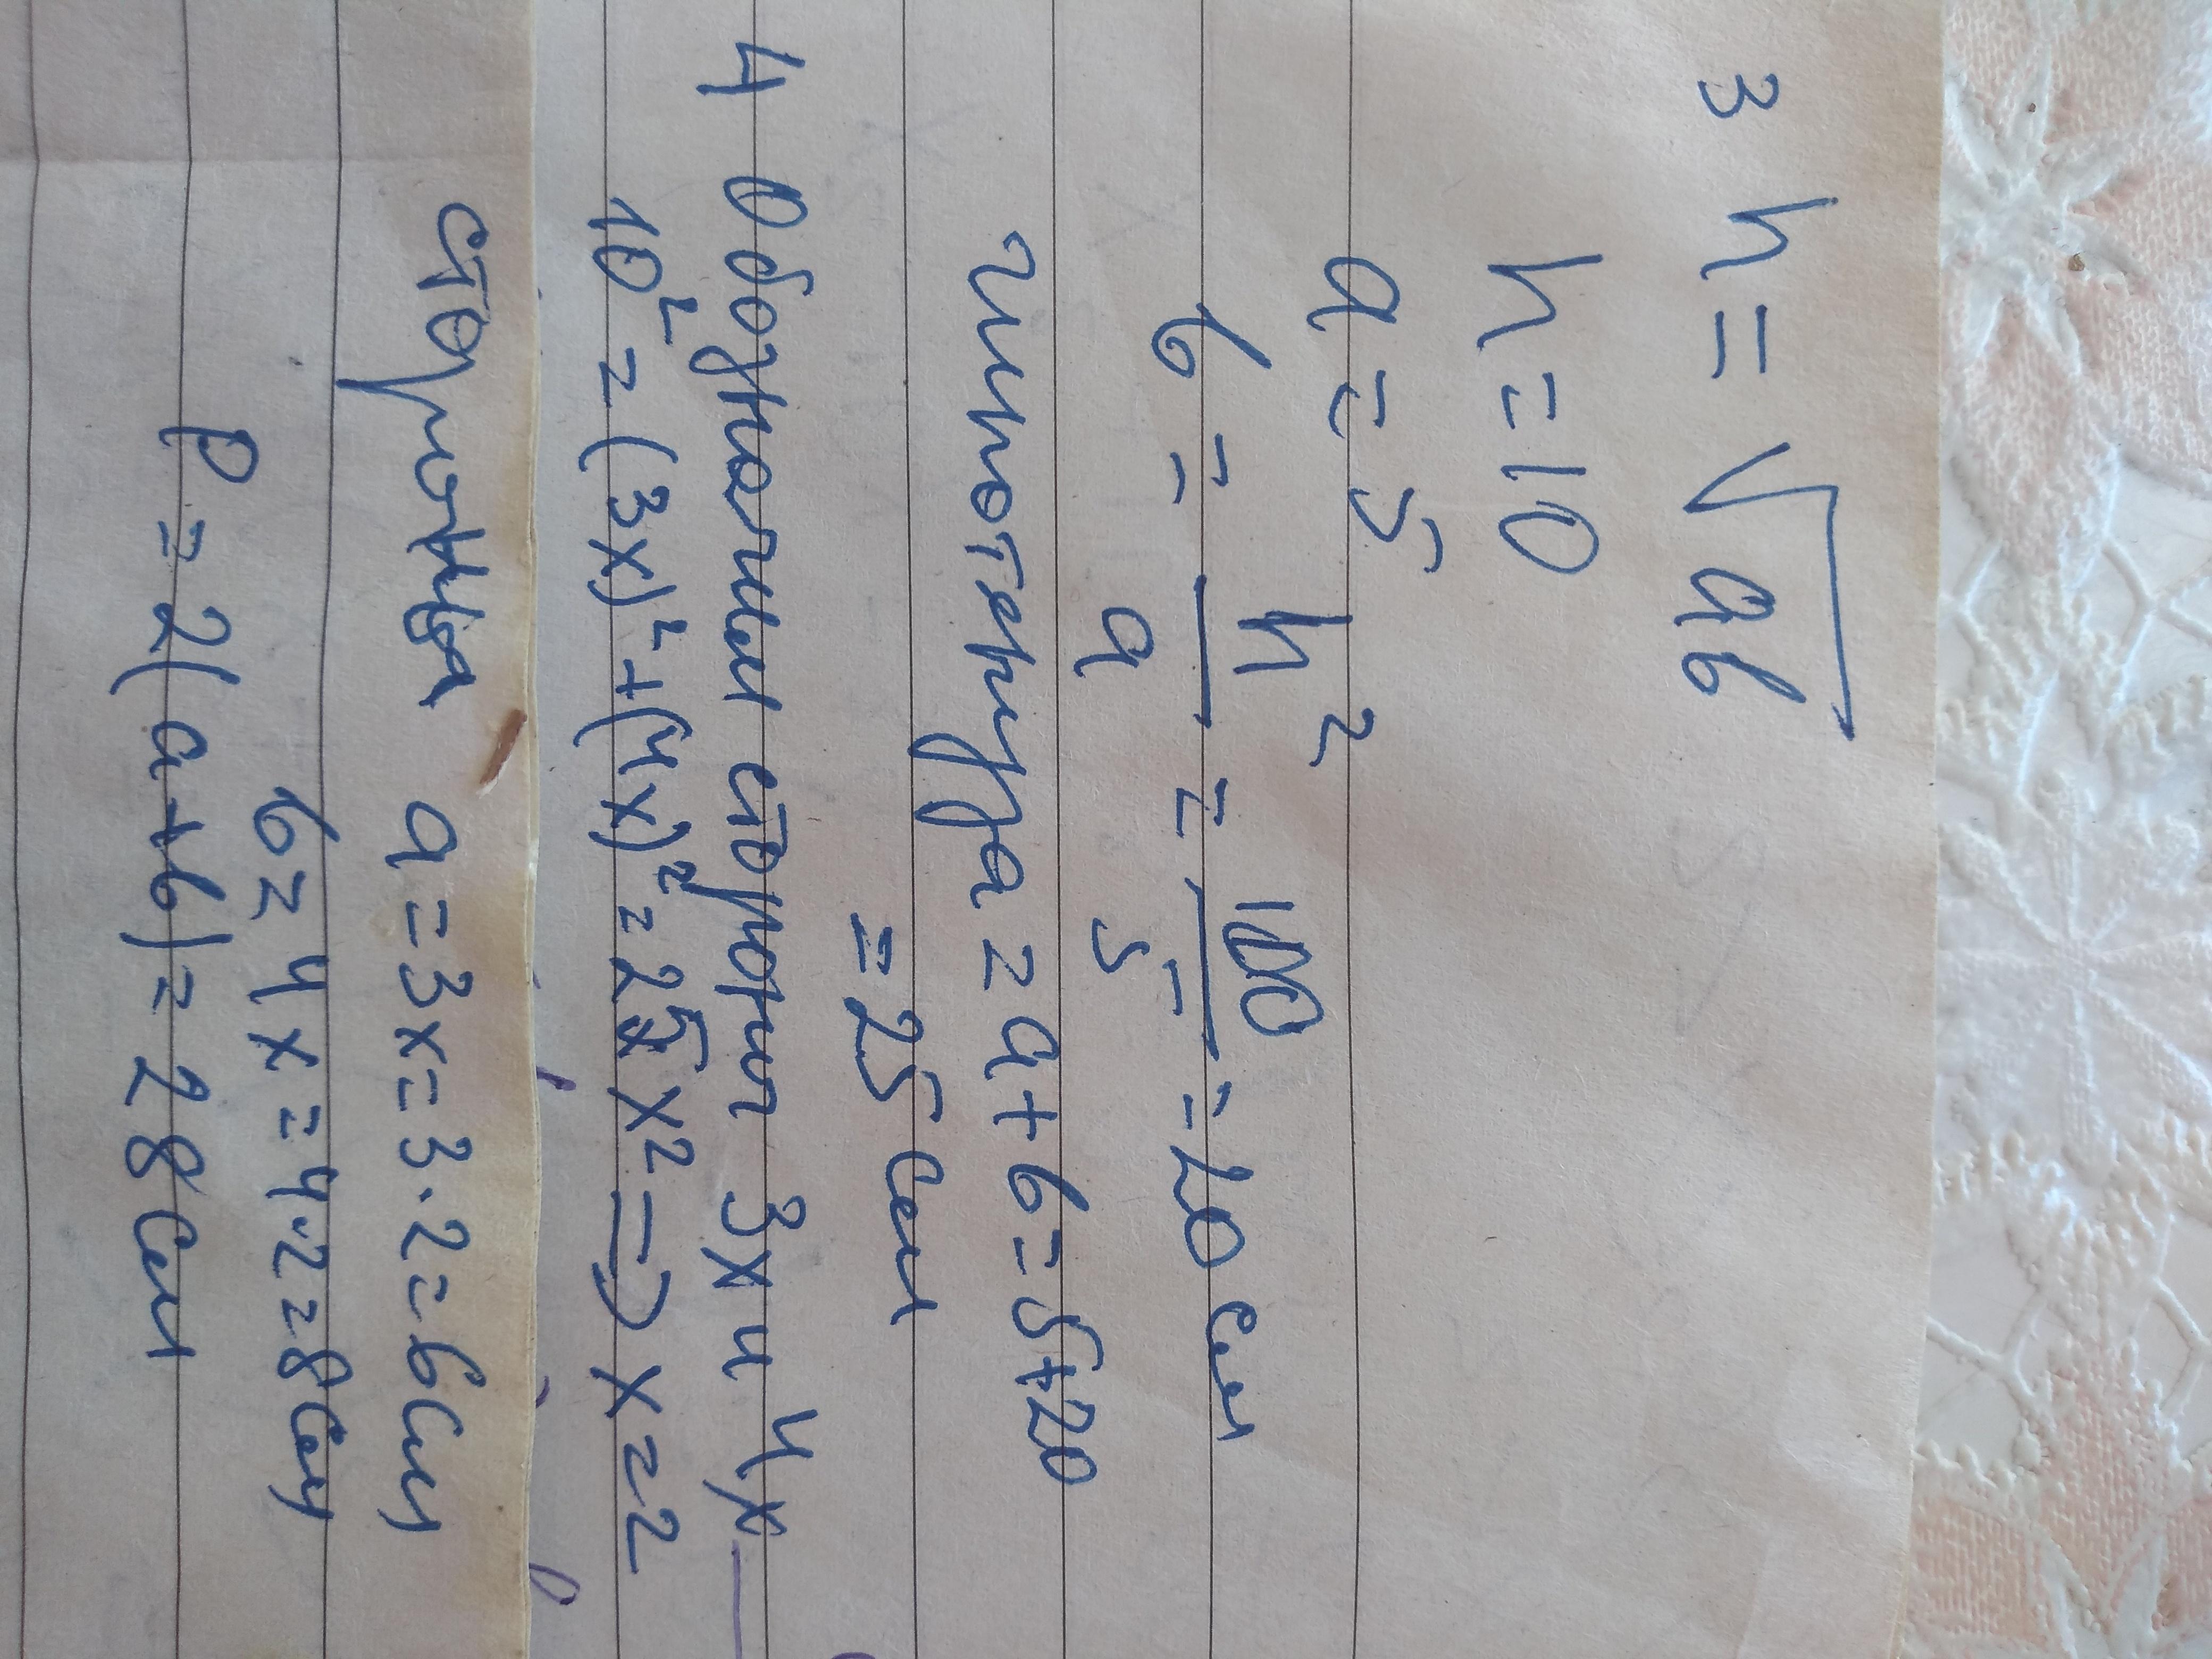 3 h = √ab
h = 10
a = 5
b = h² / a = 100 / 5 = 20 см
гипотенуза = a + b = 5 + 20
= 25 см
4 Обозначим стороны 3x и 4x
10² = (3x)² + (4x)² = 25x² => x = 2
стороны a = 3x = 3·2 = 6 см
b = 4x = 4·2 = 8 см
P = 2(a+b) = 28 см